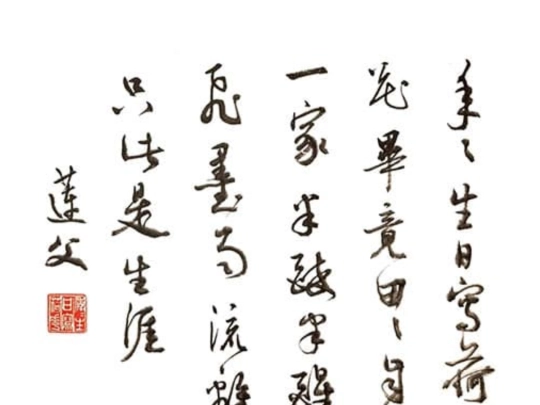 年々生日寫荷
花畢竟田々自
一家半醉半醒
飛墨雨流離
只此是生涯
蓮父